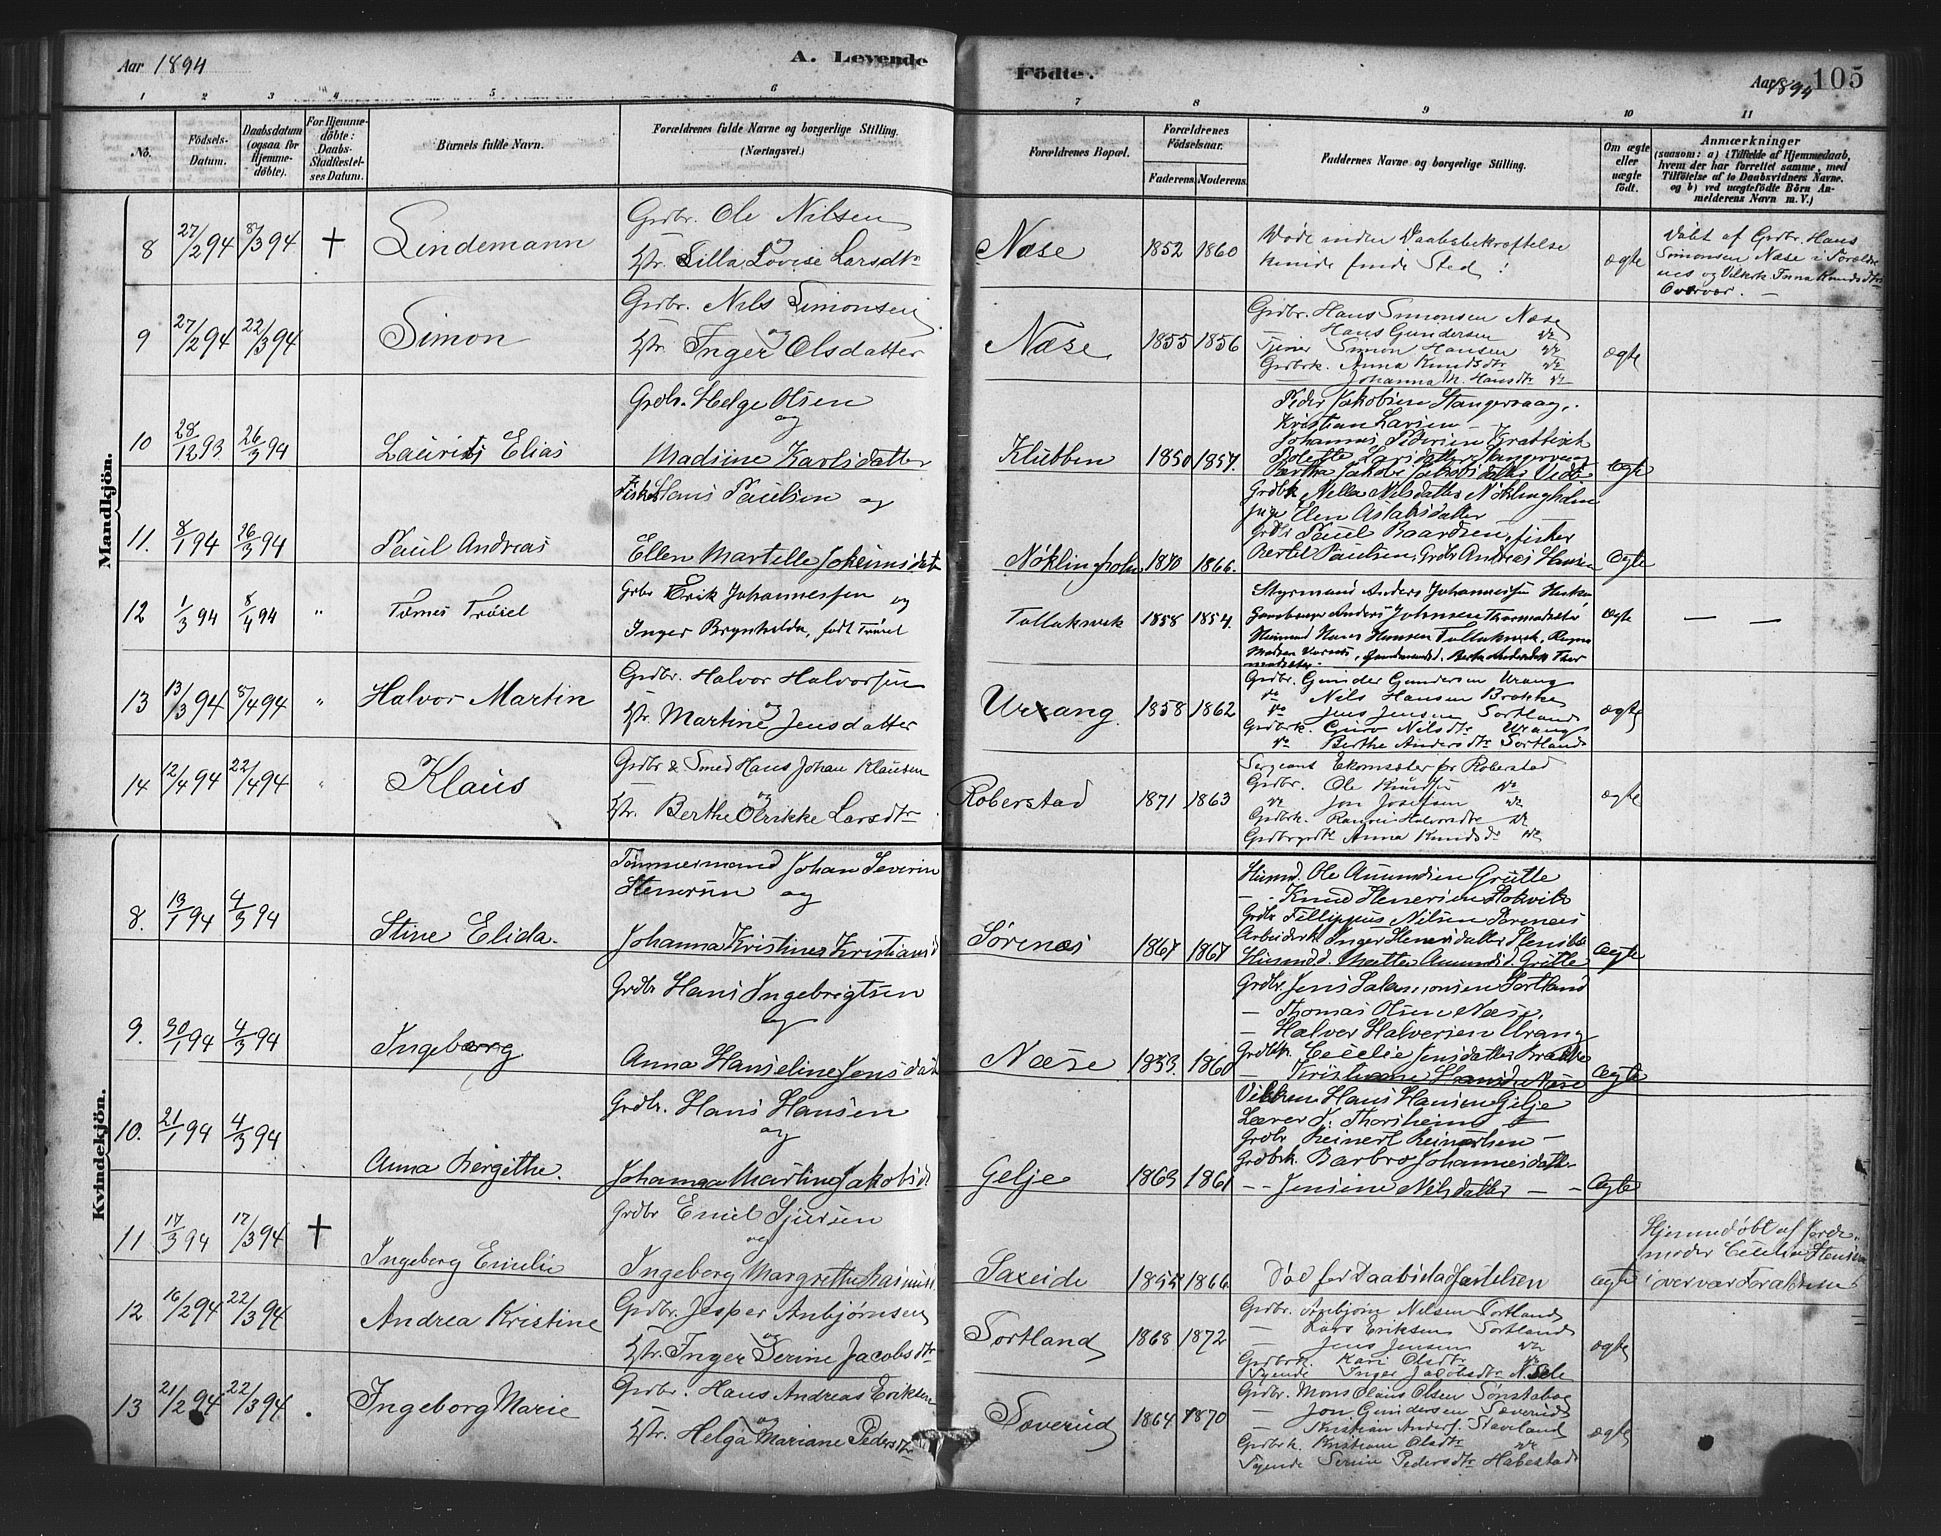 Aar 1894
A. Levende
Födte.
Aar 1894
105
1 2 3 4 5 6 7 8 9 10 11
No.
Födsels-
Datum.
Daabsdatum
(ogsaa for
Hjemme-
döbte).
For Hjemme-
döbte:
Daabs-
Stadfestel-
ses Datum.
Barnets fulde Navn.
Forældrenes fulde Navne og borgerlige Stilling.
(Næringsvei.)
Forældrenes Bopæl.
Forældrenes
Födselsaar.
Faderens. Moderens.
Faddernes Navne og borgerlige Stilling.
Om ægte
eller
uægte
födt.
Anmærkninger
(saasom: a) i Tilfælde af Hjemmedaab,
hvem der har forrettet samme, med
Tilföielse af to Daabsvidners Navne.
og b) ved uægtefödte Börn An-
melderens Navn m. V.)
Mandkjön.
8 27/2 94 8/3 94 + Lindemann
Grdbr. Ole Nilsen
og
Silla Lovise Larsdtr
Næse 1852 1860
Døde inden Daabsbekræftelse
kunde finde Sted!
ægte
Døbt af Grdbr. Hans
Simonsen Næse i Foræld-
Overvær.
9 27/2 94 22/3 94 Simon
Grdbr. Nils Simonsen
og
Inger Olsdatter
Næse 1855 1856
Grdbr. Hans Simonsen Næse
Hans Gundersen
Tjener Simon Hansen
Grdbrk. Anna Knudsdtr
Johanna M. Hansdtr
ægte
10 28/12 93 26/3 94 Laurits Elias
Grdbr. Helge Olsen
og
Madsine Karlsdatter
Klubben 1850 1857.
Peder Jakobsen Stangervaag,
Kristian Larsen
Johannes Pedersen
Bolette Larsdatter Stangervaag
Bertha Jakobi
ægte
11. 8/1 94 26/3 94 Paul Andreas
Fisker Hans Paulsen og
Ellen Martelle
Nøklingholm 1866.
Grdbk Nilla Nilsdatter Nøklingholm
Pige Elen
Grdbr Paul Baardsen, fisker
Bertel Paulsen, Grdbr Andreas Hansen
ægte
12 1/3 94 8/4 94 " Tomes Trøiel
Grbr Erik Johannessen og
Inger Brynhilda, født Trøiel
Tollaksvik 1858 1854.
Styrmand Anders Johannessen
Husmand Hans Hansen Tollaksvik,
ægte — —
13 13/3 94 8/4 94 " Halvor Martin
Grdbr. Halvor Halvorsen
og
Martine Jensdatter
Urang. 1858 1862
Grdbr. Gunder Gundersen Urang
Nils Hansen Brakke
Jens Jensen Sortland
Grdbrk. Guro Nilsdtr Urang
Berthe Andersdtr Sortland
ægte
14 12/4 94 22/4 94 " Klaus
Grdbr & Smed Hans Johan Klausen
og
Berthe Olrikke Larsdtr
Roberstad 1871 1863
Sergeant Ekornsæter for Roberstad
Grdbr. Ole Knudsen
Jon Josefsen
Grdbrk. Halvorsdtr
Anna Knudsdtr
ægte
Kvindekjön.
8. 13/1 94 4/3 94 Stine Elida.
Tømmermand Johan Severin
Stenersen og
Johanna Kristine Kristiansd
Sørenæs 1867 1867
Husmd. Ole Amundsen Grütle
Knud Stenersen Stokvik
Grdbr Fillippus Nilsen Sørenæs
Arbeiderk Inger Stenersdatter
Husmd. Amundsd. Grütle
ægte
9. 30/1 94 4/3 94 Ingeborg
Grdbr Hans Ingebrigtsen
og
Anna Hanseline Jensdatr
Næse 1853. 1860
Grdbr. Jens Salamonsen Sortland
— Thomas Olsen Næse,
— Halvor Halvorsen Urang
Grdbk. Cecelie Jensdatter Brakke
— Kristiane Hansdtr Næse
ægte
10. 21/1 94 4/3 94 Anna Bergithe.
Grdbr. Hans Hansen
og
Johanna Martine Jakobsd
Gelje 1863 1861
Hans Hansen Gilje
Lærer Thorsheim —
Grdbr Reinert Reinertsen —
Grdbrk. Barbro Johannesdatter
— Jensine Nilsdatter — —
ægte
11 17/3 94 17/3 94 + Ingeborg Emilie
Grdbr Emil Sjursen
og
Ingeborg Margrethe Rasmusd
Saxeide 1866
Død før Daabsstadfæstelsen
ægte
Hjemmedøbt af Jorde-
moder Cecilie
i overvær Forældrene
12 16/2 94 22/3 94 Andrea Kristine
Grdbr. Jesper Anbjørnsen
og
Inger Serine Jacobsdtr
Sortland 1868 1872
Grdbr. Anbjørn Nilsen Sortland
— Lars Eriksen Sortland
— Jens Jensen
Grdbrk. Kari Olsdtr
Tjenende Inger Jacobsdtr
ægte
13 21/2 94 22/3 94 . Ingeborg Marie
Grdbr. Hans Andreas Eriksen
og
Helga Mariane Pedersdtr
Sæverud 1864 1870
Grdbr. Mons Claus Olsen Sønstabøe
— Jon Gundersen Sæverud
— Kristian Anders. Staveland
Grdbrk. Kristiane Olsdtr
Tjenende Serine Pedersdtr Habestad
ægte